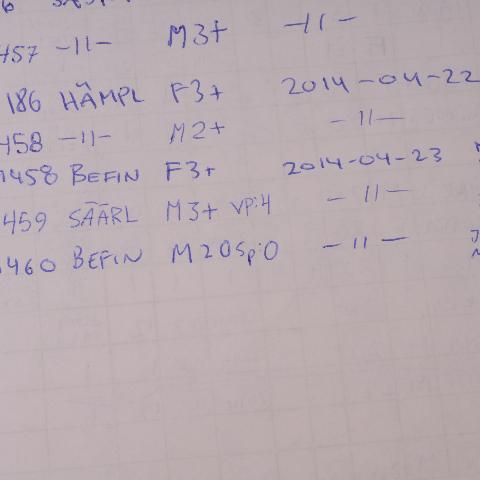 457 -11- M3+ -11-
186 HÄMPL F3+ 2014-04-22
458 -11- M2+ -11-
1458 BEFIN F3+ 2014-04-23
459 SÄÄRL M3+ VP:4 -11-
1460 BEFIN M20Sp:0 -11-